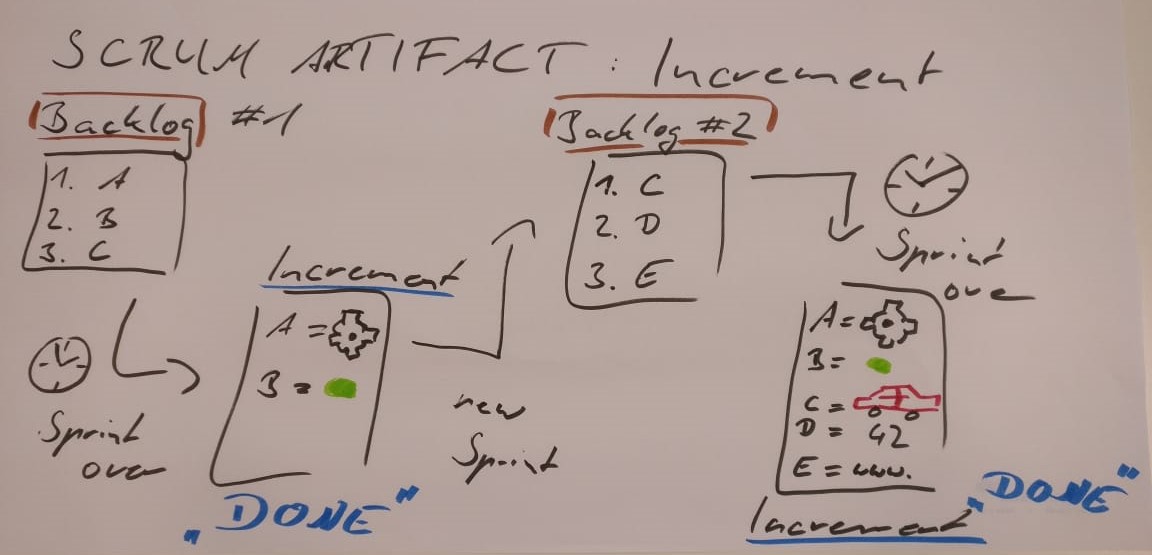 SCRUM ARTIFACT : Increment
Backlog #1
1. A
2. B
3. C
Sprint
over
Increment
A =
B =
„DONE”
new
Sprint
Backlog #2
1. C
2. D
3. E
Sprint
over
A =
B =
C =
D = 42
E = www.
Increment
„DONE”